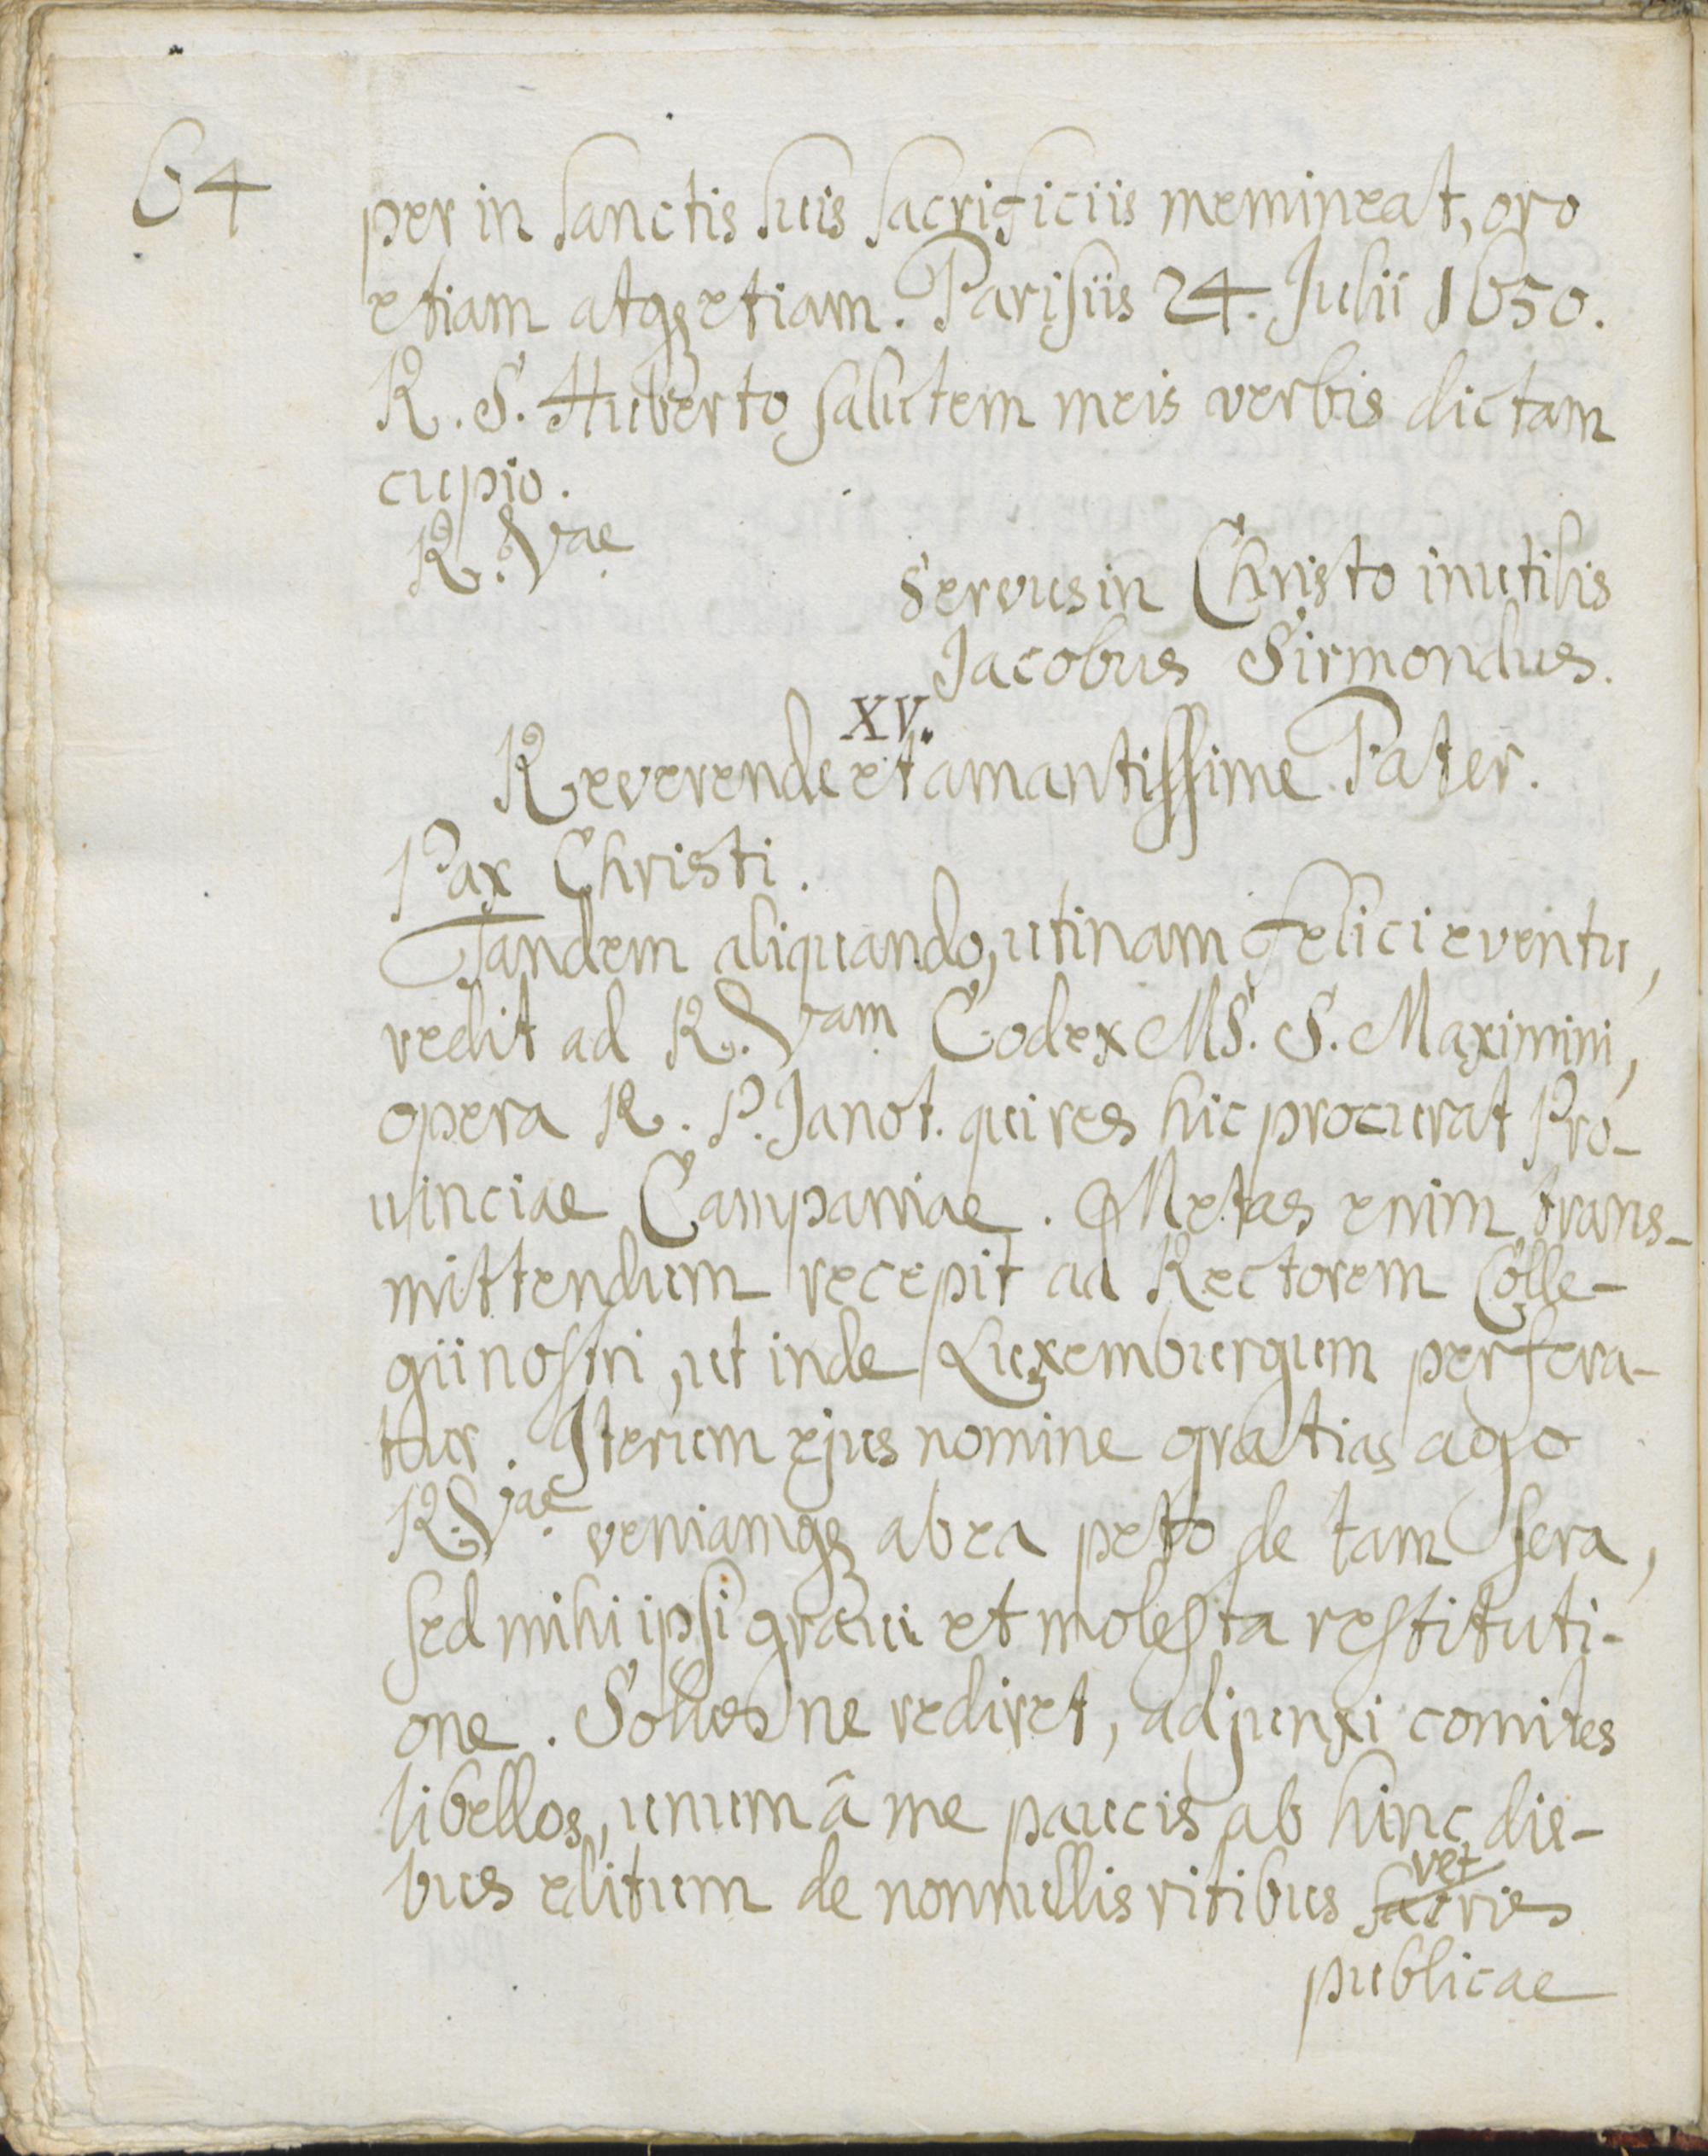 64
per in sanctis suis sacrificiis memineat, oro
etiam atqꝫ etiam. Parisiis 24. Julii 1650.
R. S. Huberto salutem meis verbis dictam
cupio.
R. Vae.
Servus in Christo inutilis
Jacobus Sirmondus.
XV.
Reverende et amantissime Pater.
Pax Christi.
Tandem aliquando, utinam felici eventu,
redit ad R. Vam. Codex MS. S. Maximini,
opera R. P. Janot. qui res hic procurat Pro-
uinciae Campaniae. Metas enim trans-
mittendum recepit ad Rectorem Colle-
gii nostri, ut inde Luxemburgum perfera-
tur. Iterum ejus nomine gratias ago
R. Vae. veniamqꝫ ab ea peto de tam sera,
sed mihi ipsi graui et molesta restituti-
one. Solus ne rediret, adjunxi comites
libellos, unum â me paucis ab hinc die-
bus editum de nonnullis ritibus
vet
publicae